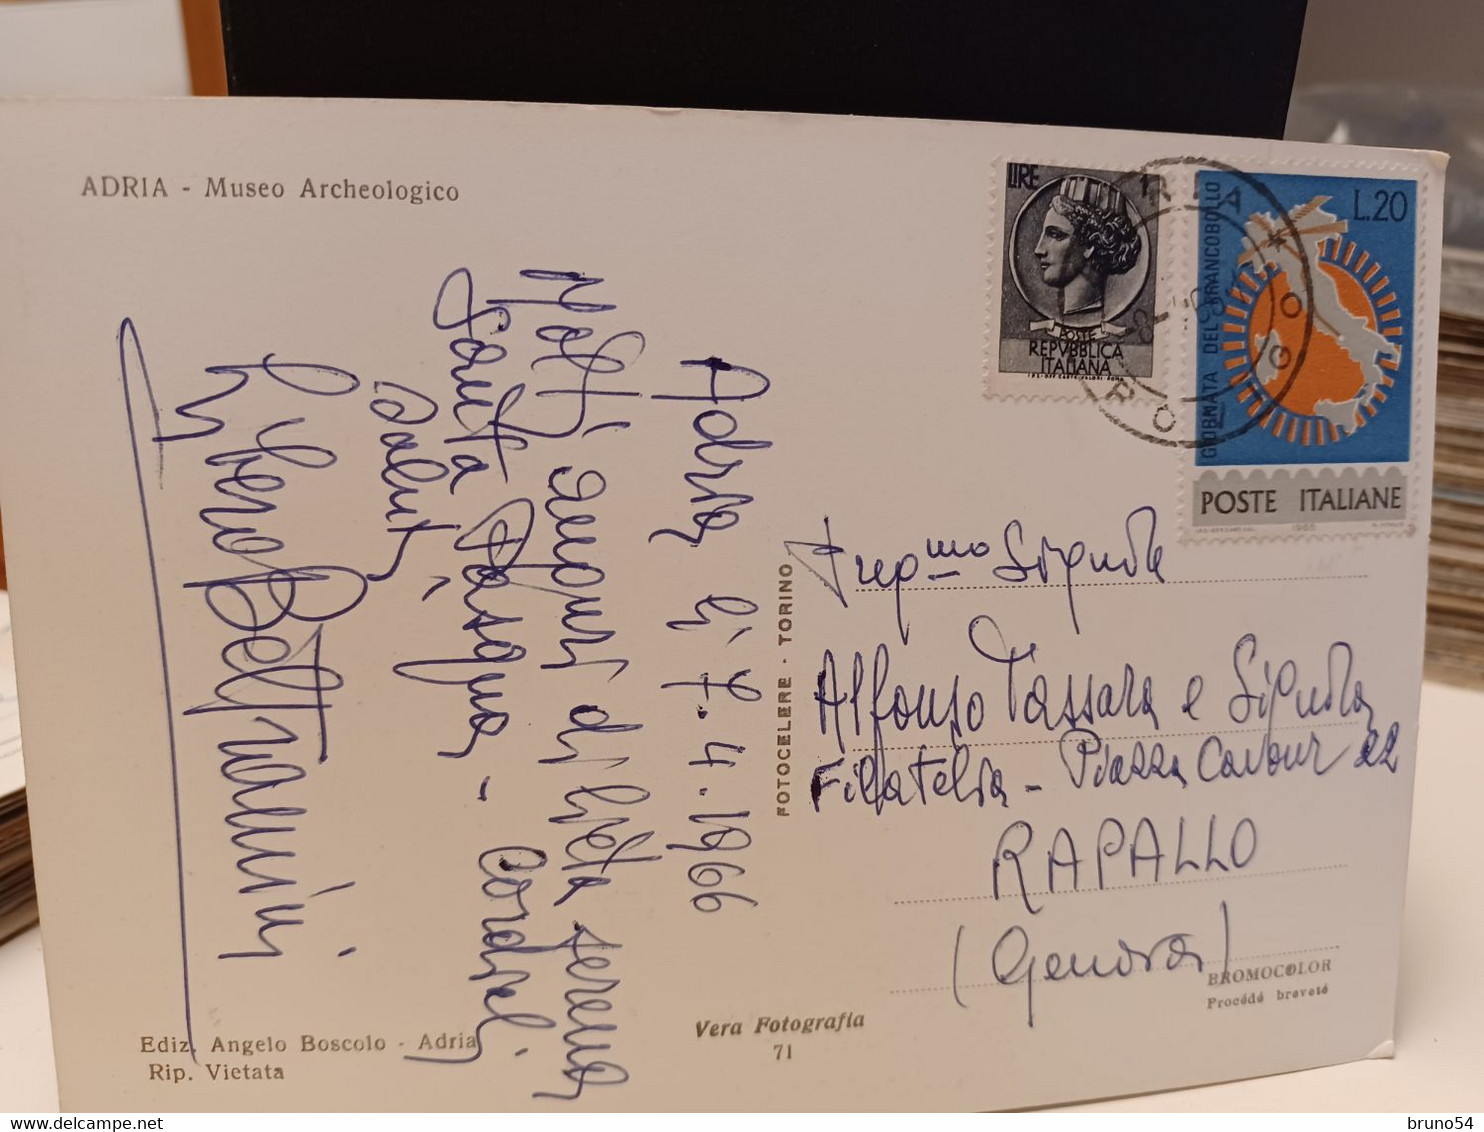 ADRIA - Museo Archeologico
Adria lì 7.4.1966
Molti auguri di lieta serena
Santa Pasqua - cordiali
saluti
Libero Beltramini
Ediz. Angelo Boscolo - Adria
Rip. Vietata
Vera Fotografia
71
FOTOCELERE - TORINO
LIRE 1
POSTE
REPVBBLICA
ITALIANA
I.P.S. OFF. CARTE VALORI - ROMA
GIORNATA DEL FRANCOBOLLO
L.20
POSTE ITALIANE
1965
ROVIGO
Preg.mo Signore
Alfonso Tassara e Signora
Filatelia - Piazza Cavour 22
RAPALLO
(Genova)
BROMOCOLOR
Procédé breveté
bruno54